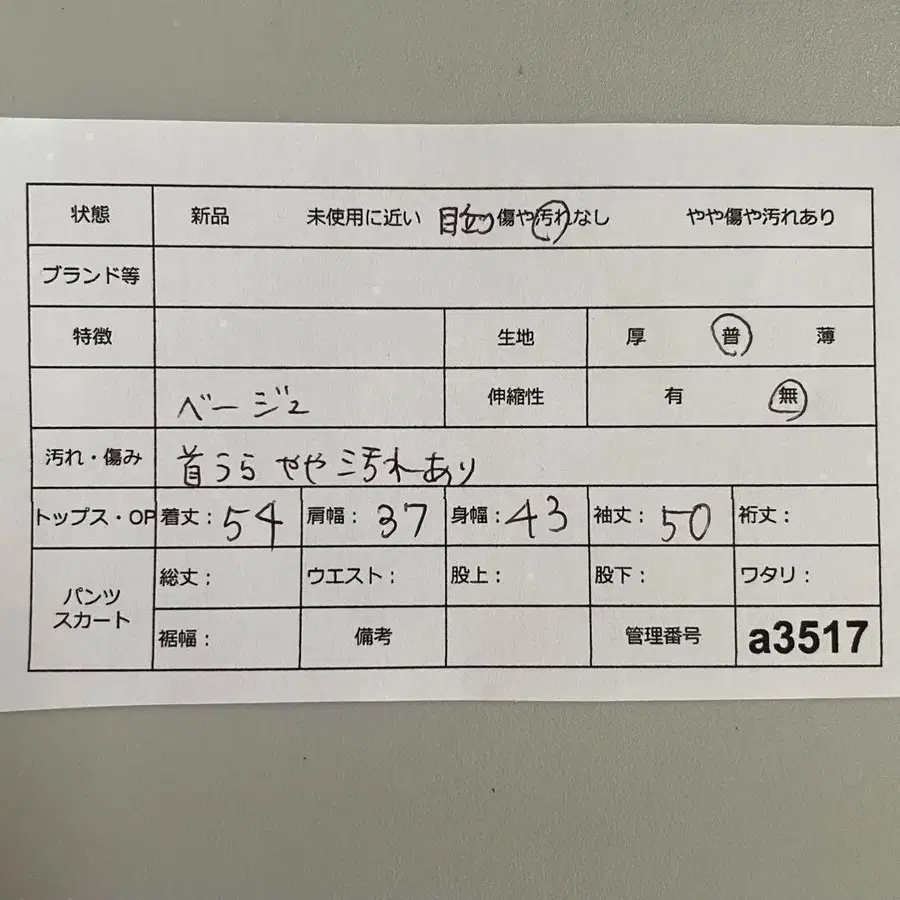 状態 新品 未使用に近い 目立つ傷や汚れなし やや傷や汚れあり
ブランド等
特徴 生地 厚 普 薄
ベージュ 伸縮性 有 無
汚れ・傷み 首うら やや汚れあり
トップス・OP 着丈: 54 肩幅: 37 身幅: 43 袖丈: 50 裄丈:
パンツ スカート 総丈: ウエスト: 股上: 股下: ワタリ:
裾幅: 備考 管理番号 a3517